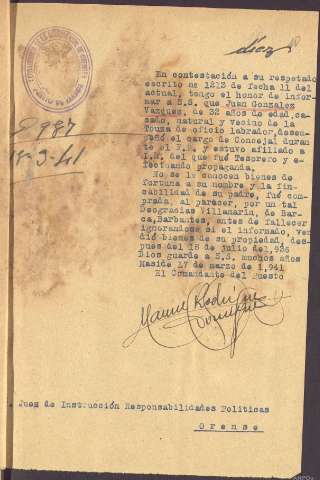 Diaz
987
18-3-41
En contestación a su respetado
escrito nº 1212 de fecha 11 del
actual, tengo el honor de infor-
mar a S.S. que Juan Gonzalez
Vazques, de 32 años de edad,ca-
sado, natural y vecino de la
Touza de oficio labrador,desem-
peñó el cargo de Concejal duran
te el F.P. y estuvo afiliado a
I.R. del que fué Tesorero y e-
fectuando propaganda.
No se le conocen bienes de
fortuna a su nombre y la fin-
cabilidad de su padre, fué com-
prada, al parecer, por un tal
Desgracias Villamarin, de Bar-
ca,Barbantes, antes de fallecer
ignorandose si el informado, ven
dió bienes de su propiedad, des-
pues del 18 de julio del.936
Dios guarde a S.S. muchos años
Maside 17 de marzo de 1.941
El Comandante del Puesto
Manuel Rodri
. Juez de Instrucción Responsabilidades Politicas
Orense